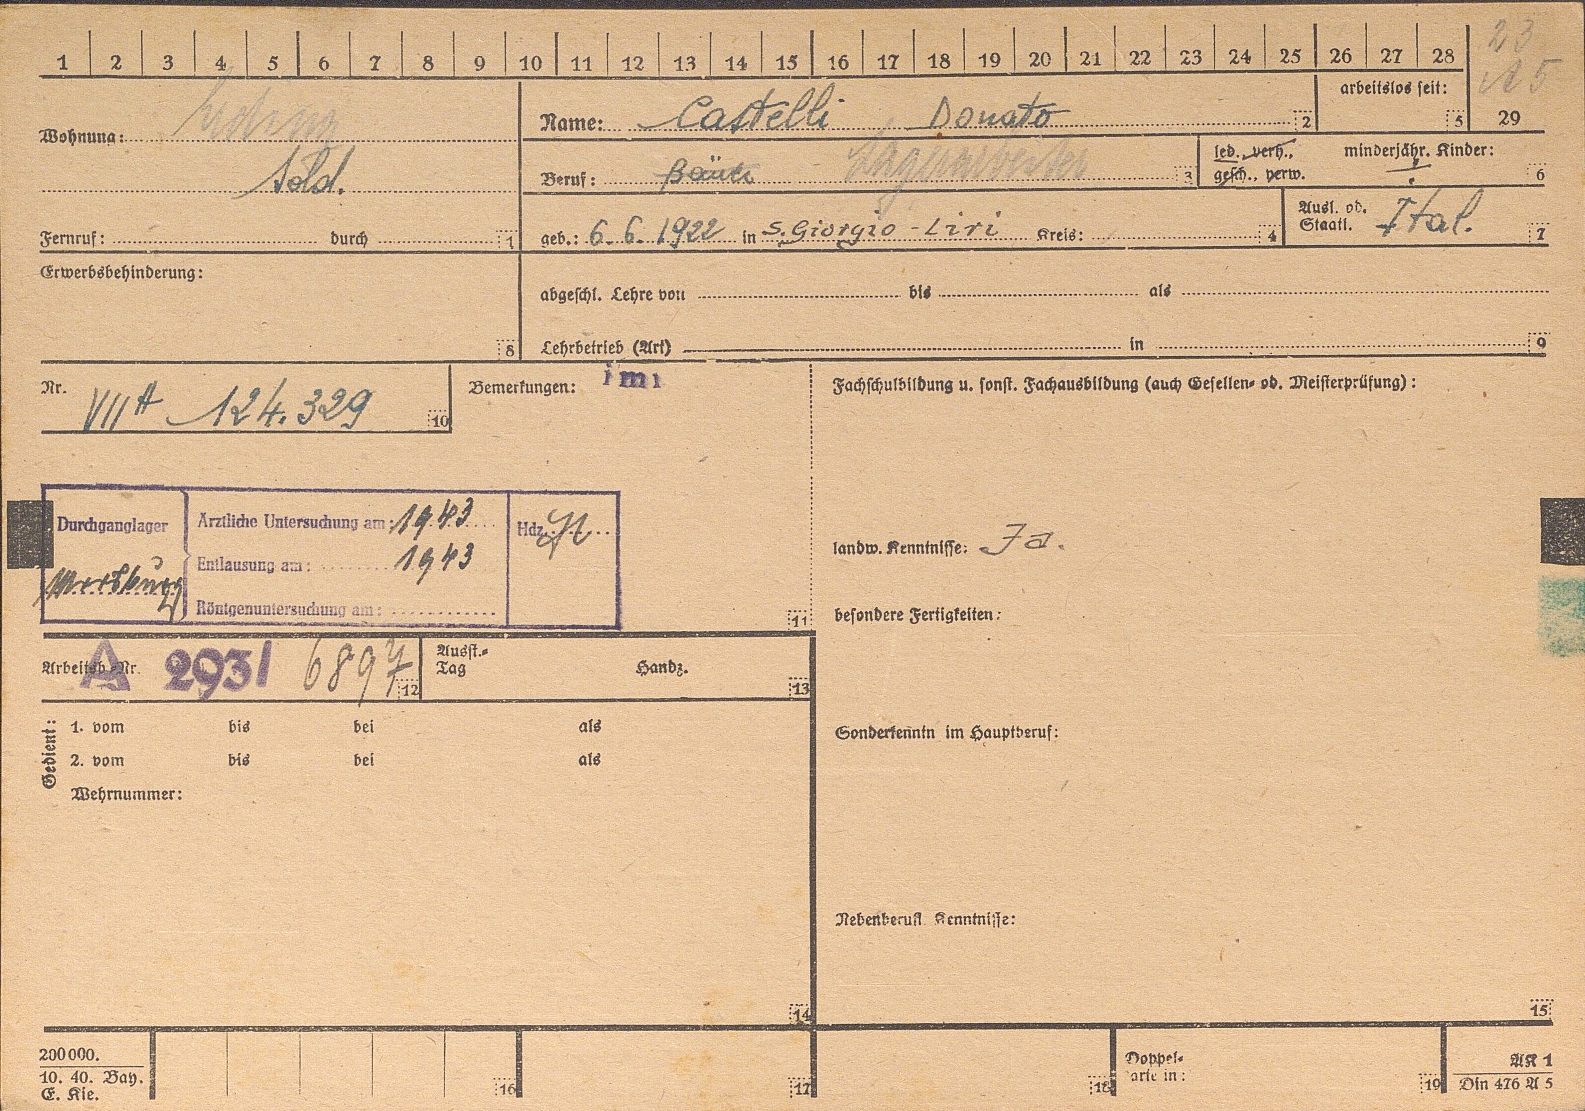 1 2 3 4 5 6 7 8 9 10 11 12 13 14 15 16 17 18 19 20 21 22 23 24 25 26 27 28
23
A 5
29
arbeitslos seit:
5
Wohnung:
Sold.
Fernruf: durch 1
Name: Castelli Donato 2
Beruf: 3
led., verh.,
gesch., verw.
minderjähr. Kinder:
6
geb.: 6.6.1922 in S.Giorgio-Liri Kreis: 4
Ausl. od.
Staatl. Ital. 7
Erwerbsbehinderung:
8
abgeschl. Lehre von bis als
Lehrbetrieb (Art) in 9
Nr. VII A 124.329 10
Bemerkungen: imi
11
Fachschulbildung u. sonst. Fachausbildung (auch Gesellen- od. Meisterprüfung):
Durchganglager
Ärztliche Untersuchung am: 1943
Hdz.
Entlausung am: 1943
Röntgenuntersuchung am:
landw. Kenntnisse: Ja.
besondere Fertigkeiten:
Arbeitsb.-Nr. A 293/ 6897 12
Ausst.-
Tag Handz. 13
Gedient:
1. vom bis bei als
2. vom bis bei als
Wehrnummer:
14
Sonderkenntn im Hauptberuf:
Nebenberufl. Kenntnisse:
15
200000.
10. 40. Bay.
E. Kie.
16
17
18
Doppel-
karte in: 19
AK 1
Din 476 A 5